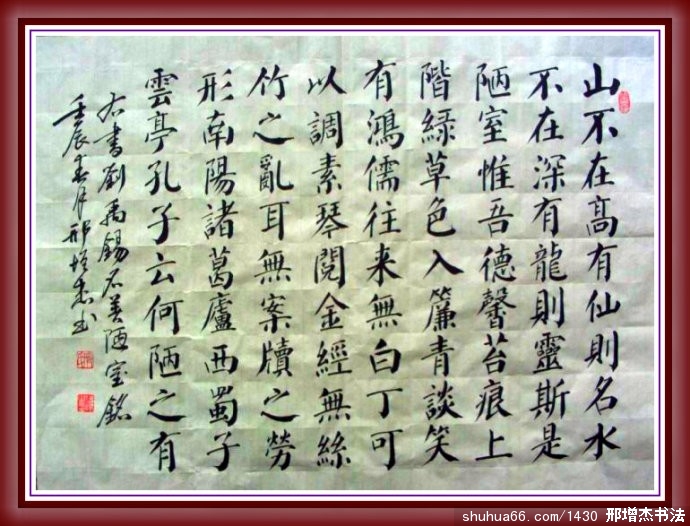 山不在高有仙則名水
不在深有龍則靈斯是
陋室惟吾德馨苔痕上
階緑草色入簾青談笑
有鴻儒往来無白丁可
以調素琴閲金經無絲
竹之亂耳無案牘之勞
形南陽諸葛廬西蜀子
雲亭孔子云何陋之有
右書劉禹錫名著陋室銘
壬辰春月邢增杰书
shuhua66.com/1430 邢增杰书法